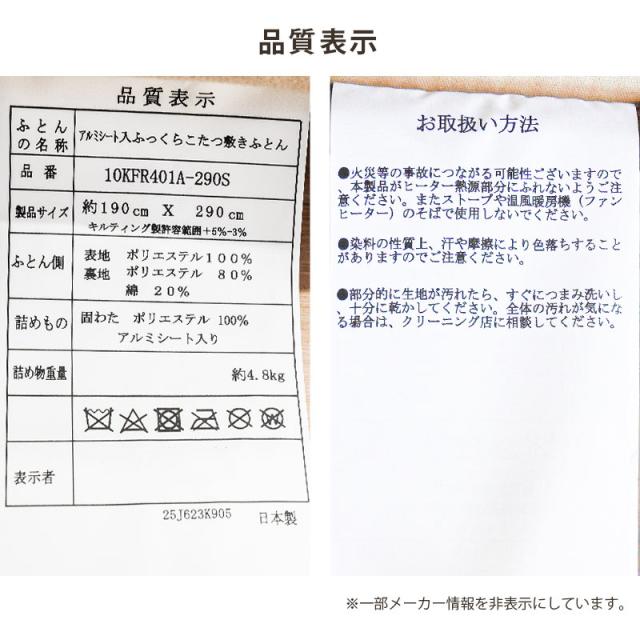 品質表示
品質表示
ふとんの名称 アルミシート入ふっくらこたつ敷きふとん
品番 10KFR401A-290S
製品サイズ 約190cm X 290cm
キルティング製許容範囲+5%-3%
ふとん側 表地 ポリエステル100%
裏地 ポリエステル 80%
綿 20%
詰めもの 固わた ポリエステル 100%
アルミシート入り
詰め物重量 約4.8kg
表示者
25J623K905 日本製
お取扱い方法
●火災等の事故につながる可能性ございますので
、本製品がヒーター熱源部分にふれないようご注
意ください。またストーブや温風暖房機(ファン
ヒーター)のそばで使用しないでください。
●染料の性質上、汗や摩擦により色落ちすること
がありますのでご注意ください。
●部分的に生地が汚れたら、すぐにつまみ洗いし
、十分に乾かしてください。全体の汚れが気にな
る場合は、クリーニング店に相談してください。
※一部メーカー情報を非表示にしています。